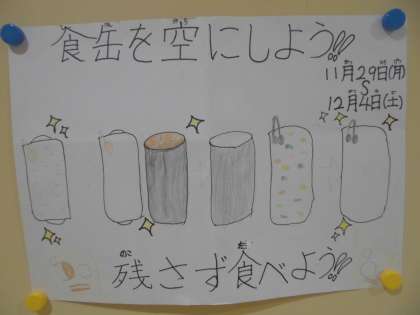 食缶を空にしよう!!
11月29日(月)
〜
12月4日(土)
残さず食べよう!!